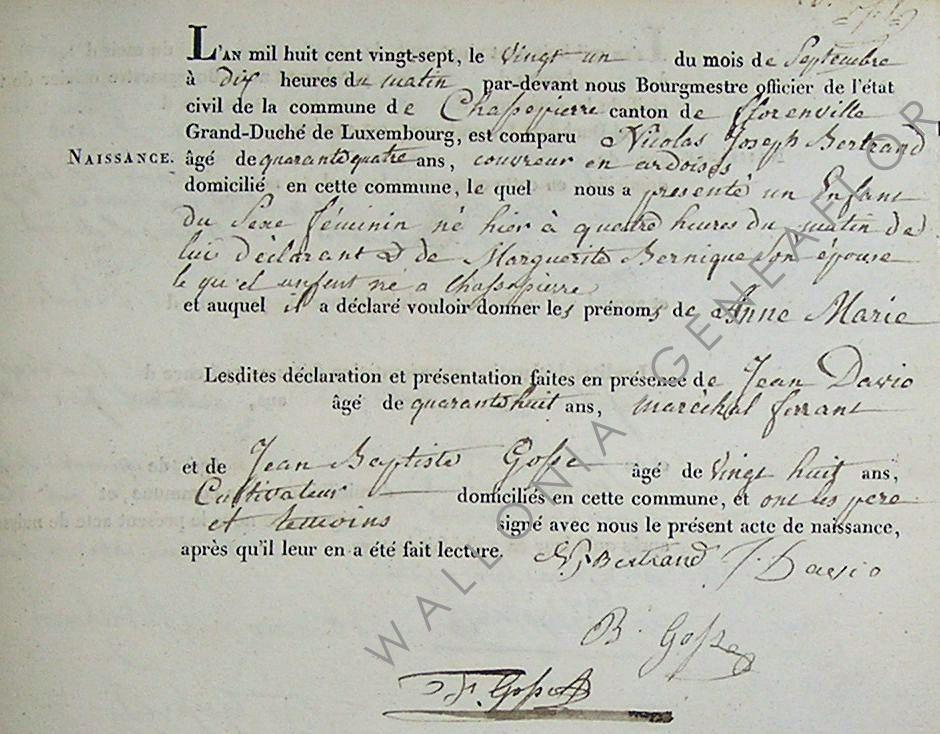 L'AN mil huit cent vingt-sept, le vingt un du mois de Septembre
à dix heures du matin par-devant nous Bourgmestre officier de l'état
civil de la commune de Chassepierre canton de Florenville
Grand-Duché de Luxembourg, est comparu Nicolas Joseph Bertrand
NAISSANCE. âgé de quarante quatre ans, couvreur en ardoises
domicilié en cette commune, le quel nous a presenté un Enfant
du Sexe féminin né hier à quattre heures du matin de
lui déclarant & de Marguerite Bernique son épouse
le qu'el enfent né a Chassepierre
et auquel il a déclaré vouloir donner les prénoms de Anne Marie
Lesdites déclaration et présentation faites en présence de Jean Davio
âgé de quarante huit ans, maréchal ferrant
et de Jean Baptiste Gosse âgé de vingt huit ans,
Cultivateur domiciliés en cette commune, et ont les pere
et temoins signé avec nous le présent acte de naissance,
après qu'il leur en a été fait lecture. NJ Bertrand J. Davio
B. Gosse
J. F. Gosse
WALLONIA GENEAFLOR